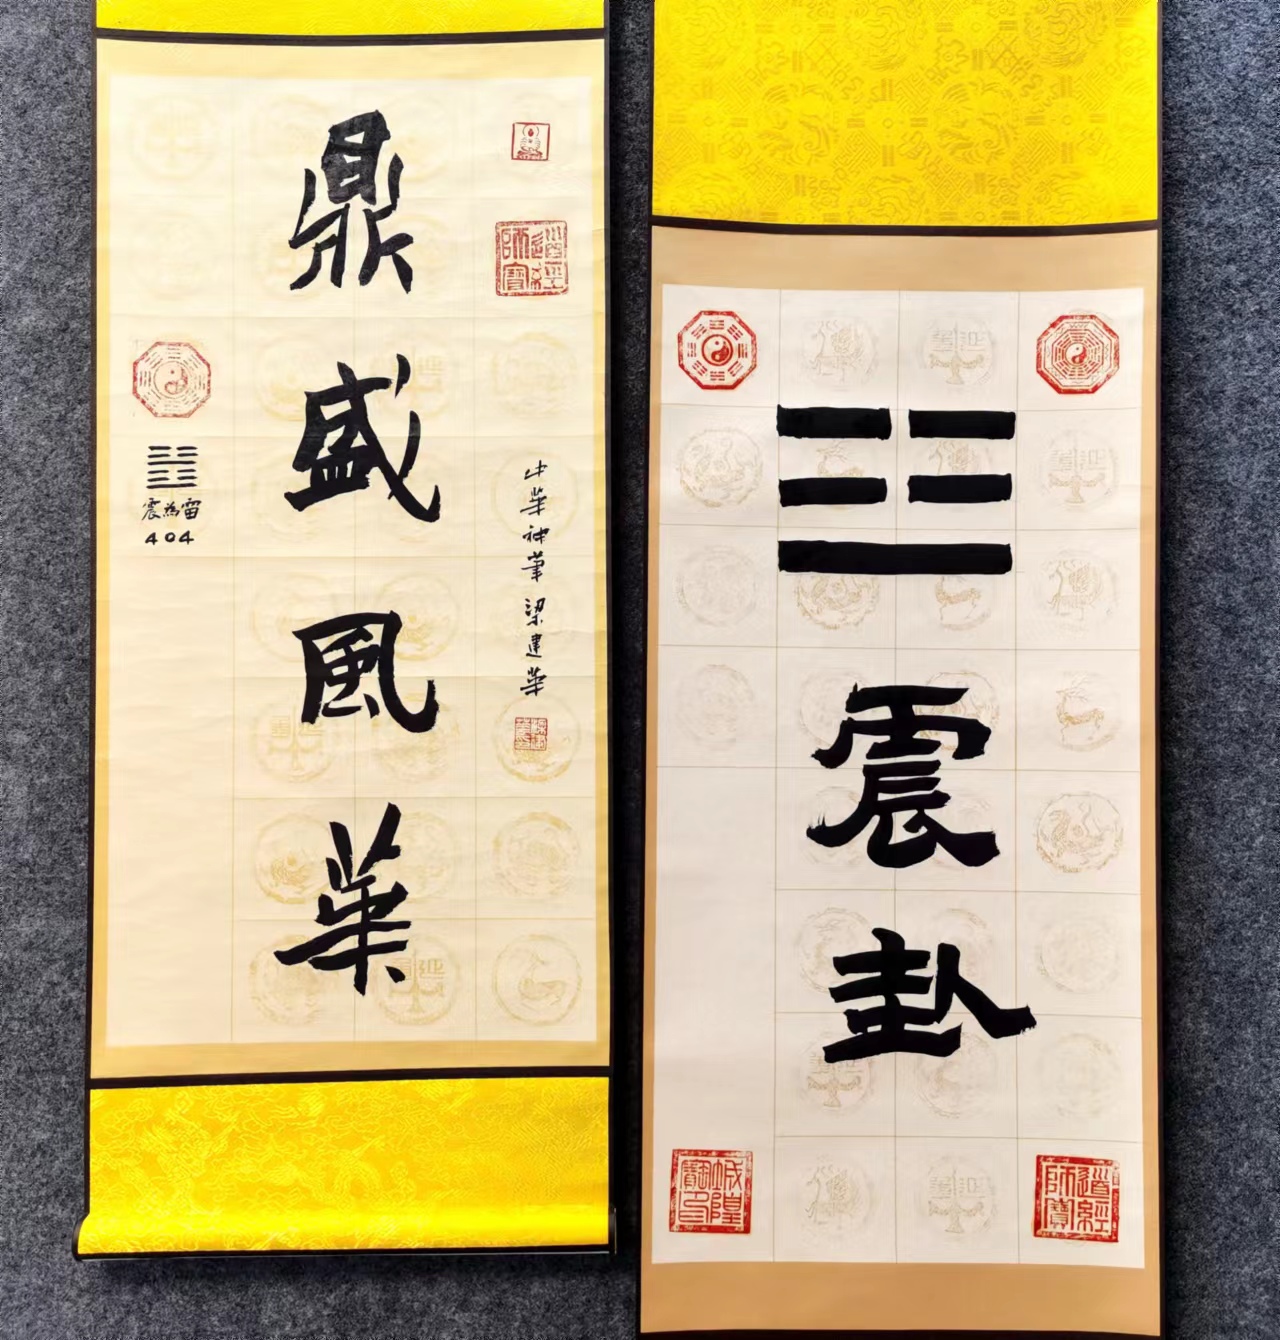 鼎盛風華
中華神筆梁建華
震為雷
404
道經師寶
震卦
城隍寶印
道經師寶